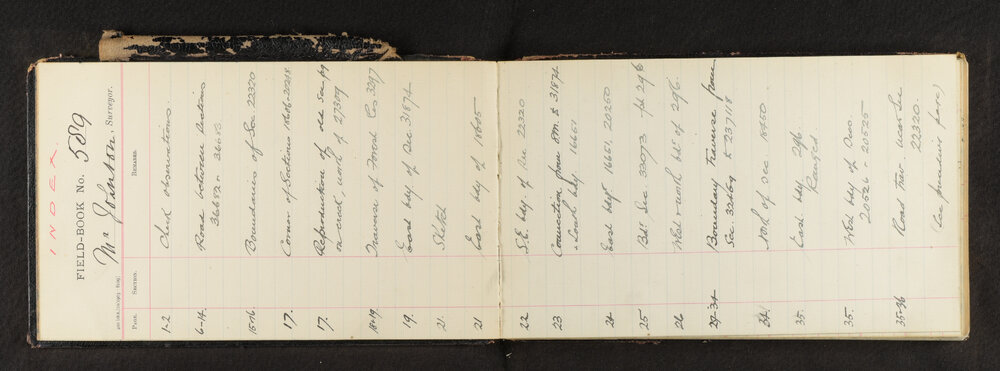 INDEX
FIELD-BOOK No. 589
Mr Johnson, Surveyor.
PAGE. SECTION. REMARKS.
1-2 Check observations.
6-14. Road between sections
36682 & 36683
15-16. Boundaries of Sec 22320
17. Corner of Sections 16616-20258
17. Reproduction of old Sec pg
18-19. Traverse of Forest Co 3297
19. East bdy of Sec 31874
21. Sketch
21 East bdy of 18605
22 S.E. bdy of Sec 22320
23 Connection from Rm. to 31874
& South bdy. 16661
24 East bdy 16661. 20250
25 Bdy Sec 33073 pt 296
26 West & north bdy of 296.
29-34 Boundary traverse from
Sec 33469 to 237118
34. North of sec 18450.
35. East bdy 296
35. West bdy of Sec
20526 & 20525
35-36 Road trav. near Sec
22320.